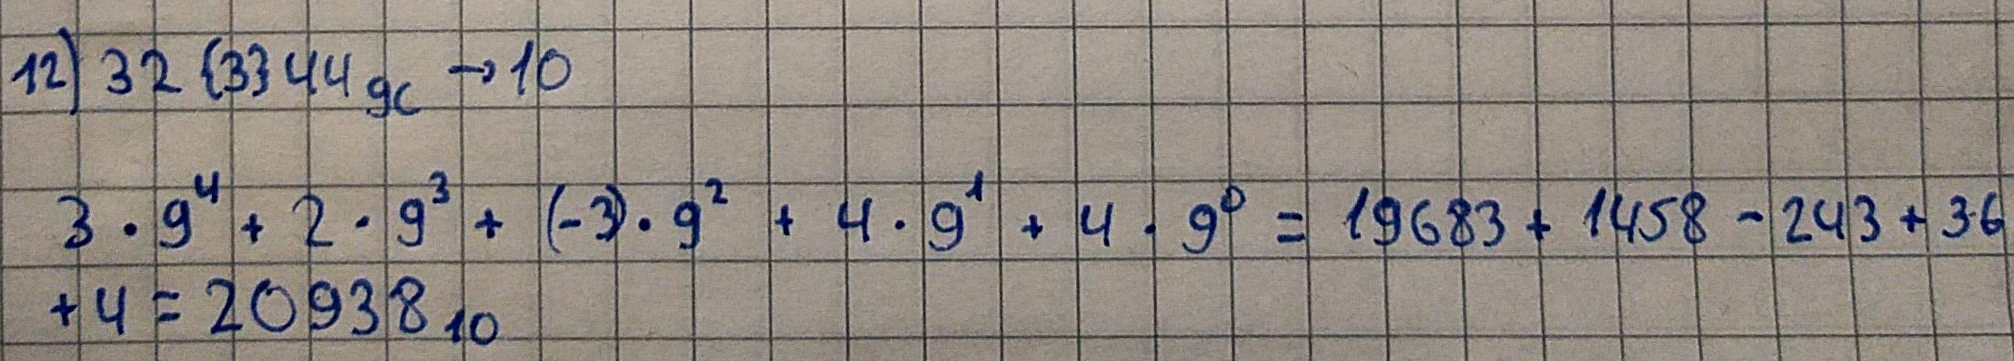 12) 32{3}44₉с → 10
3 · 9⁴ + 2 · 9³ + (-3) · 9² + 4 · 9¹ + 4 · 9⁰ = 19683 + 1458 - 243 + 36
+ 4 = 20938₁₀